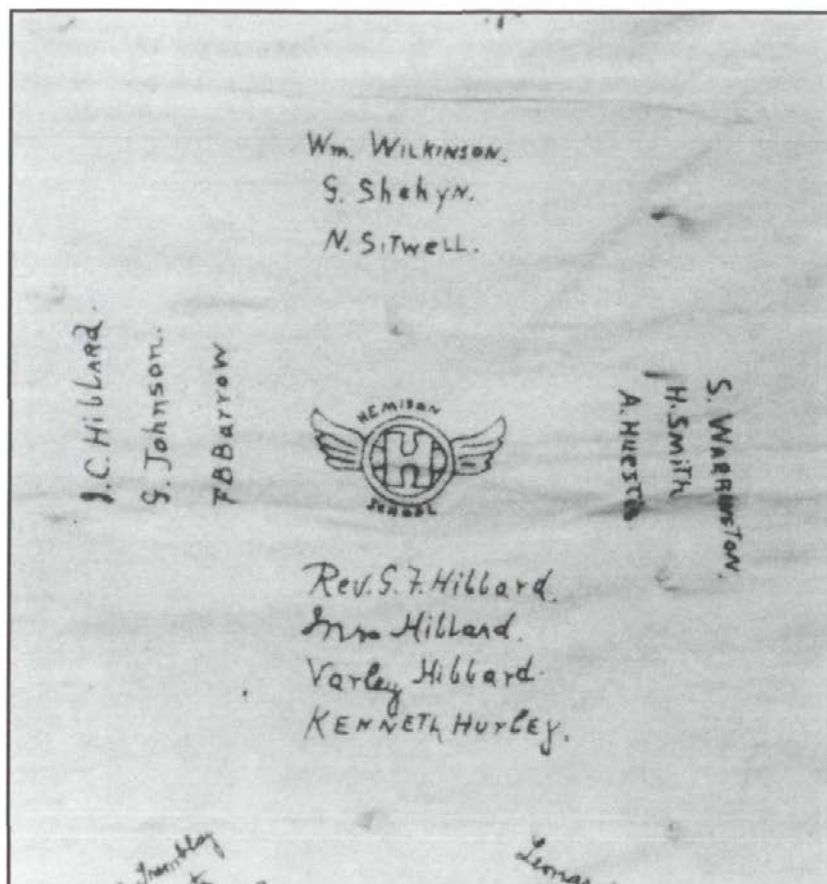 Wm. WILKINSON.
G. Shehyn.
N. SITWELL.
J.C. HibLARd.
G. Johnson.
FBBarrow
HEMISON
H
SCHOOL
S. WARRINGTON.
H. SMiTh
A. HUESTIS
Rev. G. F. Hibbard.
Mrs Hibbard.
Varley Hibbard.
KENNETh HUrLEy.
Tremblay